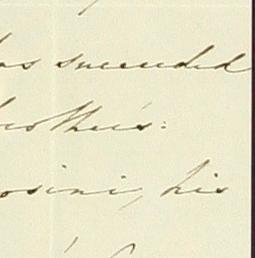 has succeeded
brother's:
osini, his